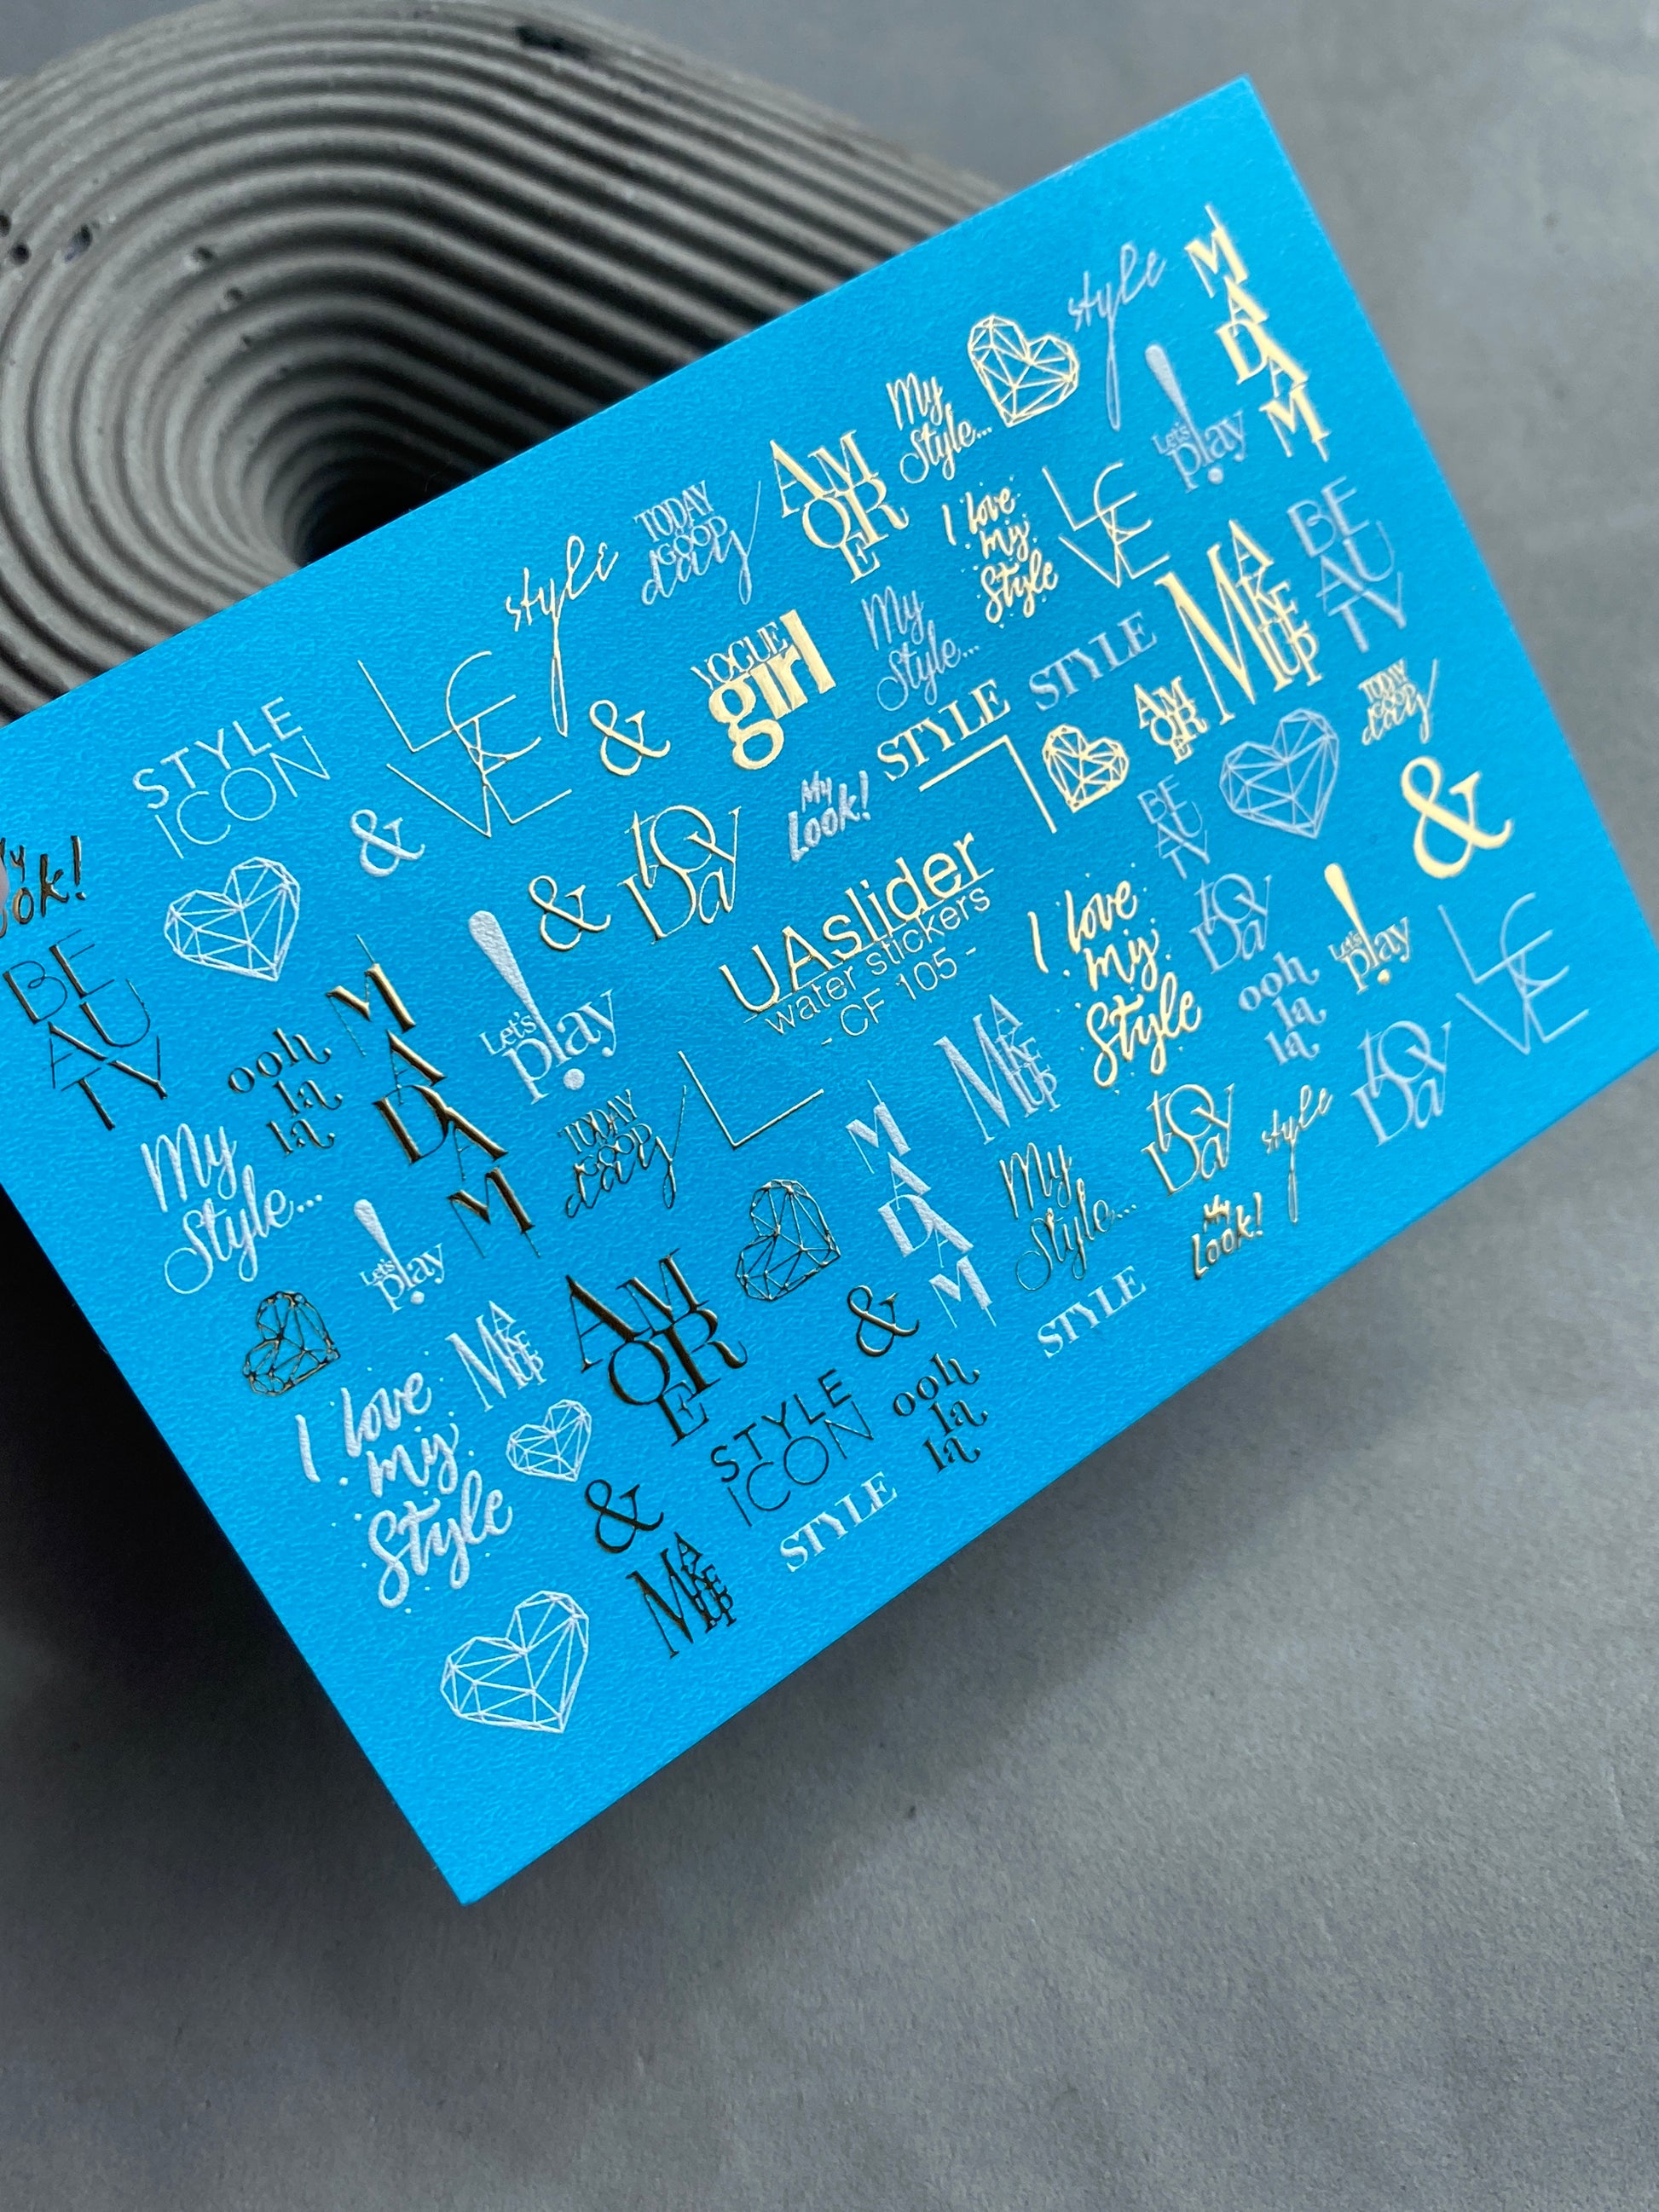 style
MADAM
My
Style...
Let's
play
AMORE
TODAY
GOOD
day
style
I love
my
Style
LEVE
BEAUTY
MAKEUP
VOGUE
girl
My
Style...
STYLE
STYLE
AMORE
TODAY
GOOD
day
&
LEVE
&
STYLE
ICON
&
toDay
My
Look!
BEAUTY
&
&
UAslider
water stickers
- CF 105 -
I love
my
Style
toDay
Let's
play
LEVE
ooh
la
la
toDay
ook!
BEAUTY
ooh
la
la
MADAM
Let's
play
TODAY
GOOD
day
MAKEUP
MADAM
My
Style...
toDay
style
My
Look!
STYLE
My
Style...
Let's
play
AMORE
&
MAKEUP
I love
my
Style
STYLE
ICON
ooh
la
la
&
STYLE
MAKEUP